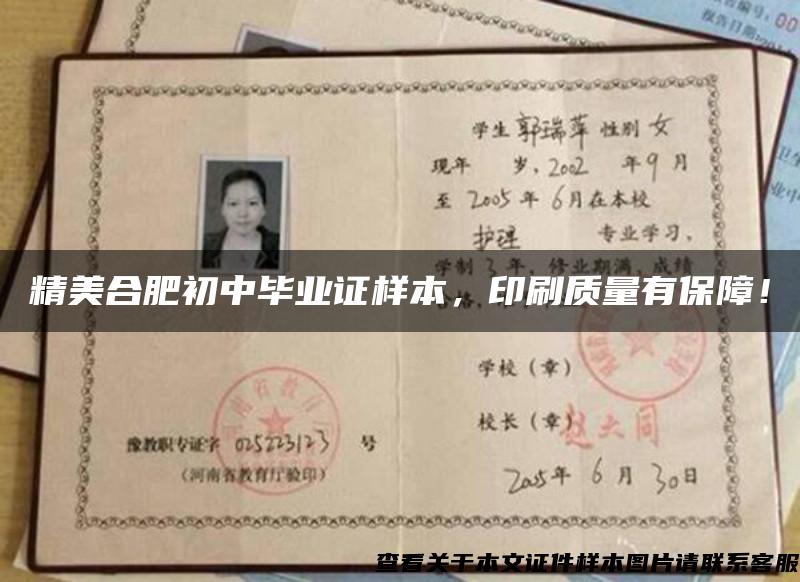 告编号：00
报告日期：201
学生 郭瑞萍 性别 女
现年 岁，2002 年 9 月
至 2005 年 6 月在本校
护理 专业学习，
学制 3 年，修业期满，成绩
精美合肥初中毕业证样本，印刷质量有保障！
学校（章）
校长（章）赵大同
豫教职专证字 025223123 号
（河南省教育厅验印）
2005 年 6 月 30 日
查看关于本文证件样本图片请联系客服